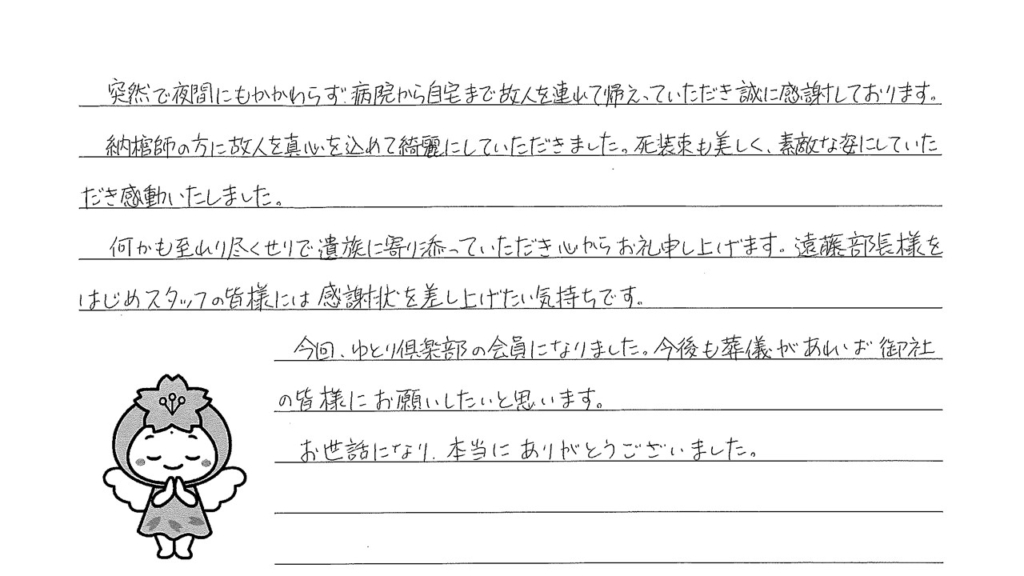 突然で夜間にもかかわらず、病院から自宅まで故人を連れて帰えっていただき誠に感謝しております。
納棺師の方に故人を真心を込めて綺麗にしていただきました。死装束も美しく、素敵な姿にしていた
だき感動いたしました。
何かも至れり尽くせりで遺族に寄り添っていただき心からお礼申し上げます。遠藤部長様を
はじめスタッフの皆様には感謝状を差し上げたい気持ちです。
今回、ゆとり倶楽部の会員になりました。今後も葬儀があればお御社
の皆様にお願いしたいと思います。
お世話になり、本当にありがとうございました。